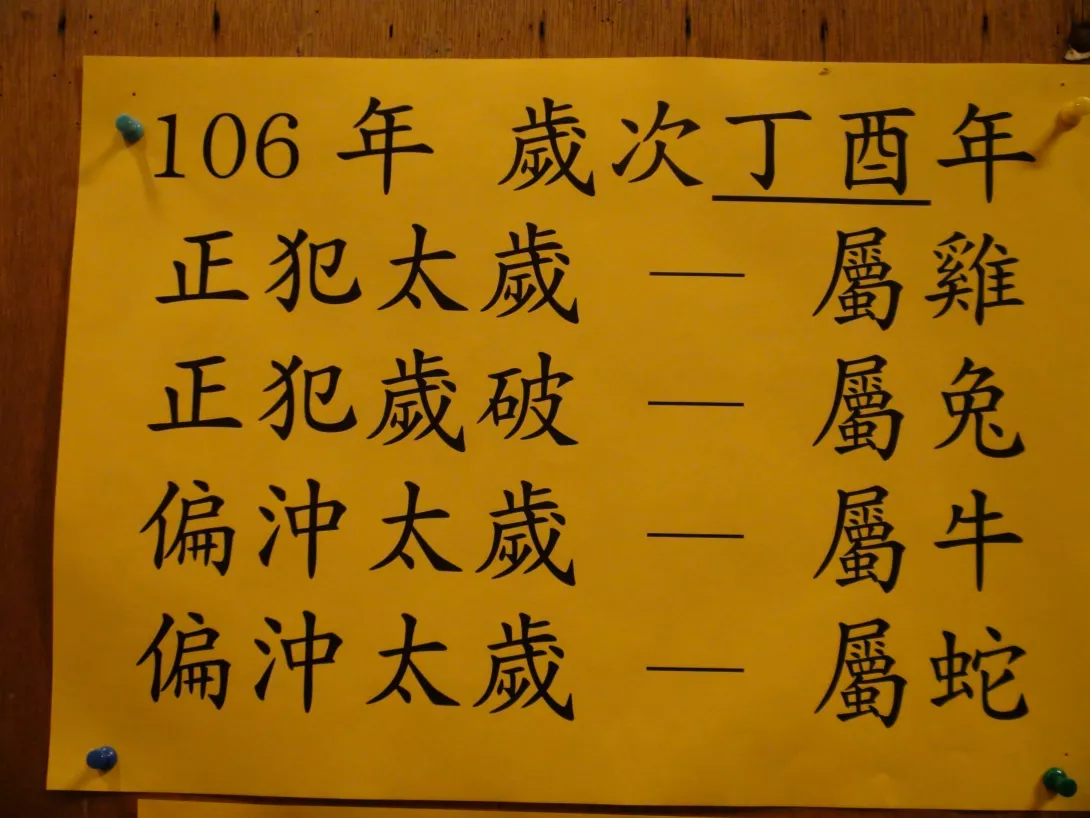 106 年 歲次丁酉年
正犯太歲 — 屬雞
正犯歲破 — 屬兔
偏沖太歲 — 屬牛
偏沖太歲 — 屬蛇